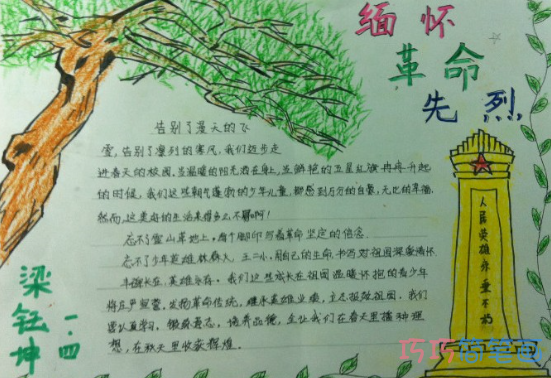 缅怀
革命
先烈
告别了漫天的飞
雪,告别了凛列的寒风,我们迈步走
进春天的校园,当温暖的阳光洒在身上,当鲜艳的五星红旗冉冉升起
的时候,我们这些朝气蓬勃的少年儿童,都感到万分的自豪,无比的幸福,
然而,这美好的生活来得多么不易啊!
忘不了雪山草地上,两个脚印写着革命坚定的信念
忘不了少年英雄林森火、王二小,用自己的生命,书写对祖国深厚情怀.
丰碑长在,英雄永存,我们这些成长在祖国温暖怀抱的青少年
将庄严宣誓,发扬革命传统,继承英雄业绩,立志报效祖国,我们
要认真学习,锻炼意志,培养品德,
让我们在春天里播种理
想,在秋天里收获辉煌。
人民英雄永垂不朽
梁钰坤
一.四
巧巧简笔画